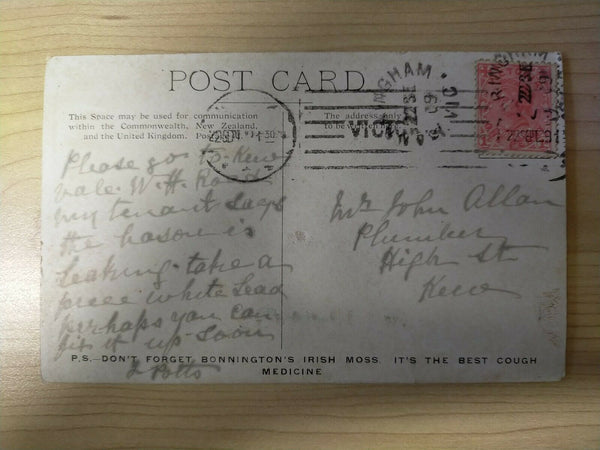 POST CARD
This Space may be used for communication
within the Commonwealth, New Zealand,
and the United Kingdom.
The address only
to be
RINGHAM
22 SE
09
VIC
VICTO
Please go to Kew
vale W. H. Road
my tenant says
the bason is
Leaking take a
piece white Lead
perhaps you can
fix it up soon
J Potts
Mr John Allan
Plumber
High St
Kew
P.S.—DON'T FORGET BONNINGTON'S IRISH MOSS. IT'S THE BEST COUGH
MEDICINE